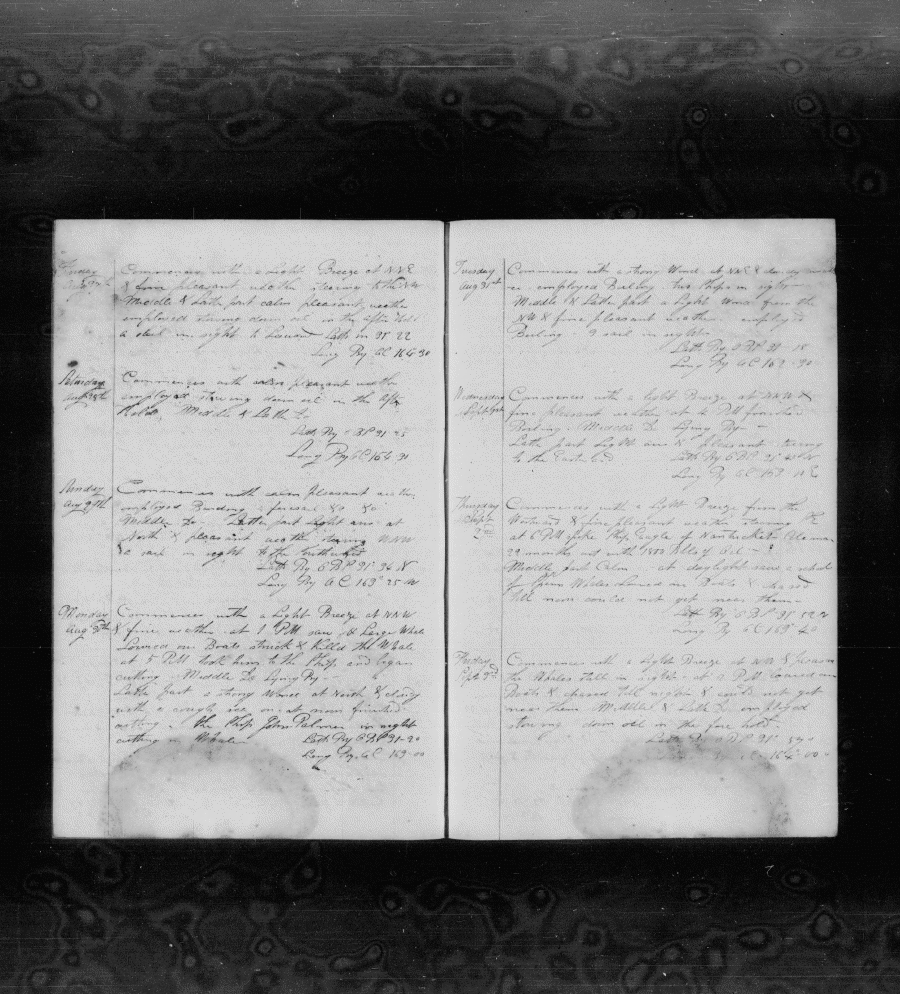 Friday
Aug 27th
Commences with a Light Breeze at NNE
& fine pleasant weather steering to the NW
Middle & Latter part calm pleasant weather
employed stowing down oil in the after hold
a sail in sight to Leeward Latt in 31 22
Long By CC 164 30
Saturday
Aug 28th
Commences with calm pleasant weather
employed stowing down oil in the after
Hold Middle & Latter Do
Latt By OBS 31
Long By CC 164 31
Sunday
Aug 29th
Commences with calm pleasant weather
employed &c &c
Middle Do Latter part Light airs at
North & pleasant weather steering WNW
a sail in sight to the Southward
Latt By OBS 31 36 N
Long By CC 163 25 W
Monday
Aug 30th
Commences with a Light Breeze at NNW
& fine weather at 1 PM saw a Large Whale
Lowered our Boats struck & killed the Whale
at 5 PM took him to the Ship and began
cutting Middle Do Lying By
Latter part a strong Wind at North & cloudy
with a rough sea on at noon finished
cutting the Ship John Palmer in sight
cutting a Whale Latt By OBS 31-20
Long By CC 163-00
Tuesday
Aug 31st
Commences with a strong Wind at NNE &
employed Boiling two Ships in sight
Middle & Latter part a Light Wind from the
NW & fine pleasant weather employed
Boiling 2 sail in sight
Latt By OBS 31 15
Long By CC 162 30
Wednesday
Sept 1st
Commences with a Light Breeze at NNW &
fine pleasant weather at 4 PM finished
Boiling Middle Do Lying By
Latter part Light airs & pleasant steering
to the Eastward Latt By OBS 31 N
Long By CC 163
Thursday
Sept
2nd
Commences with a Light Breeze from the
Westward & fine pleasant weather steering
at 6 PM spoke Ship Eagle of Nantucket Coleman
22 months out with 1850 bbls of Oil
Middle part Calm at daylight saw a
of Whales Lowered our Boats & chased
till noon could not get near them
Latt By OBS 31 52 N
Long By CC 163
Friday
Sept 3rd
Commences with a Light Breeze at NW &
the Whales still in sight at 2 PM Lowered our
Boats & chased till night & could not get
near them Middle & Latter Do employed
stowing down oil in the fore hold
Latt By OBS 31
164-00